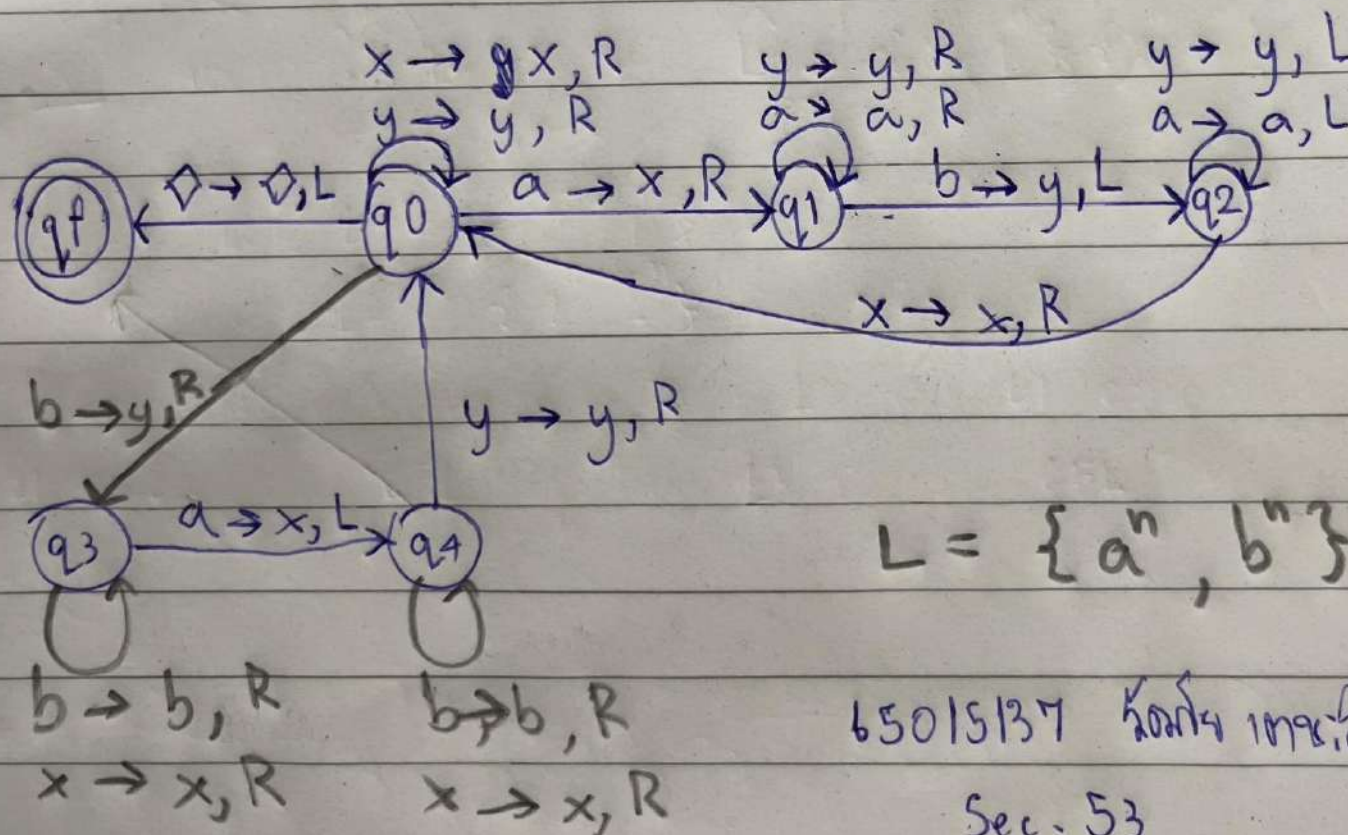 x → x, R
y → y, R
y → y, R
a → a, R
y → y, L
a → a, L
qf
◇ → ◇, L
q0
a → x, R
q1
b → y, L
q2
x → x, R
b → y, R
y → y, R
q3
a → x, L
q4
L = { aⁿ, bⁿ }
b → b, R
x → x, R
b → b, R
x → x, R
65015137
Sec. 53